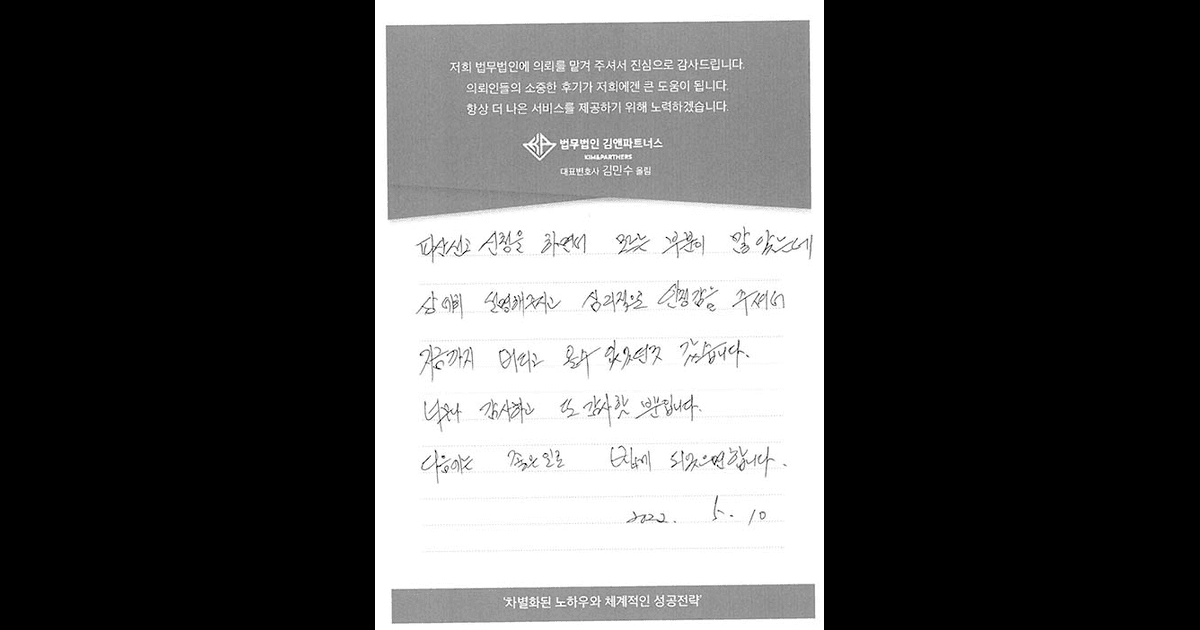 저희 법무법인에 의뢰를 맡겨 주셔서 진심으로 감사드립니다.
의뢰인들의 소중한 후기가 저희에겐 큰 도움이 됩니다.
항상 더 나은 서비스를 제공하기 위해 노력하겠습니다.
법무법인 김앤파트너스
KIM&PARTNERS
대표변호사 김민수 올림
파산선고 신청을 하면서 모르는 부분이 많았는데
상세히 설명해주시고 심리적으로 안정감을 주셔서
지금까지 버티고 올수 있었던것 같습니다.
너무나 감사하고 또 감사할 부분입니다.
다음에는 좋은일로 뵙게 되었으면합니다.
2022. 5. 10
'차별화된 노하우와 체계적인 성공전략'